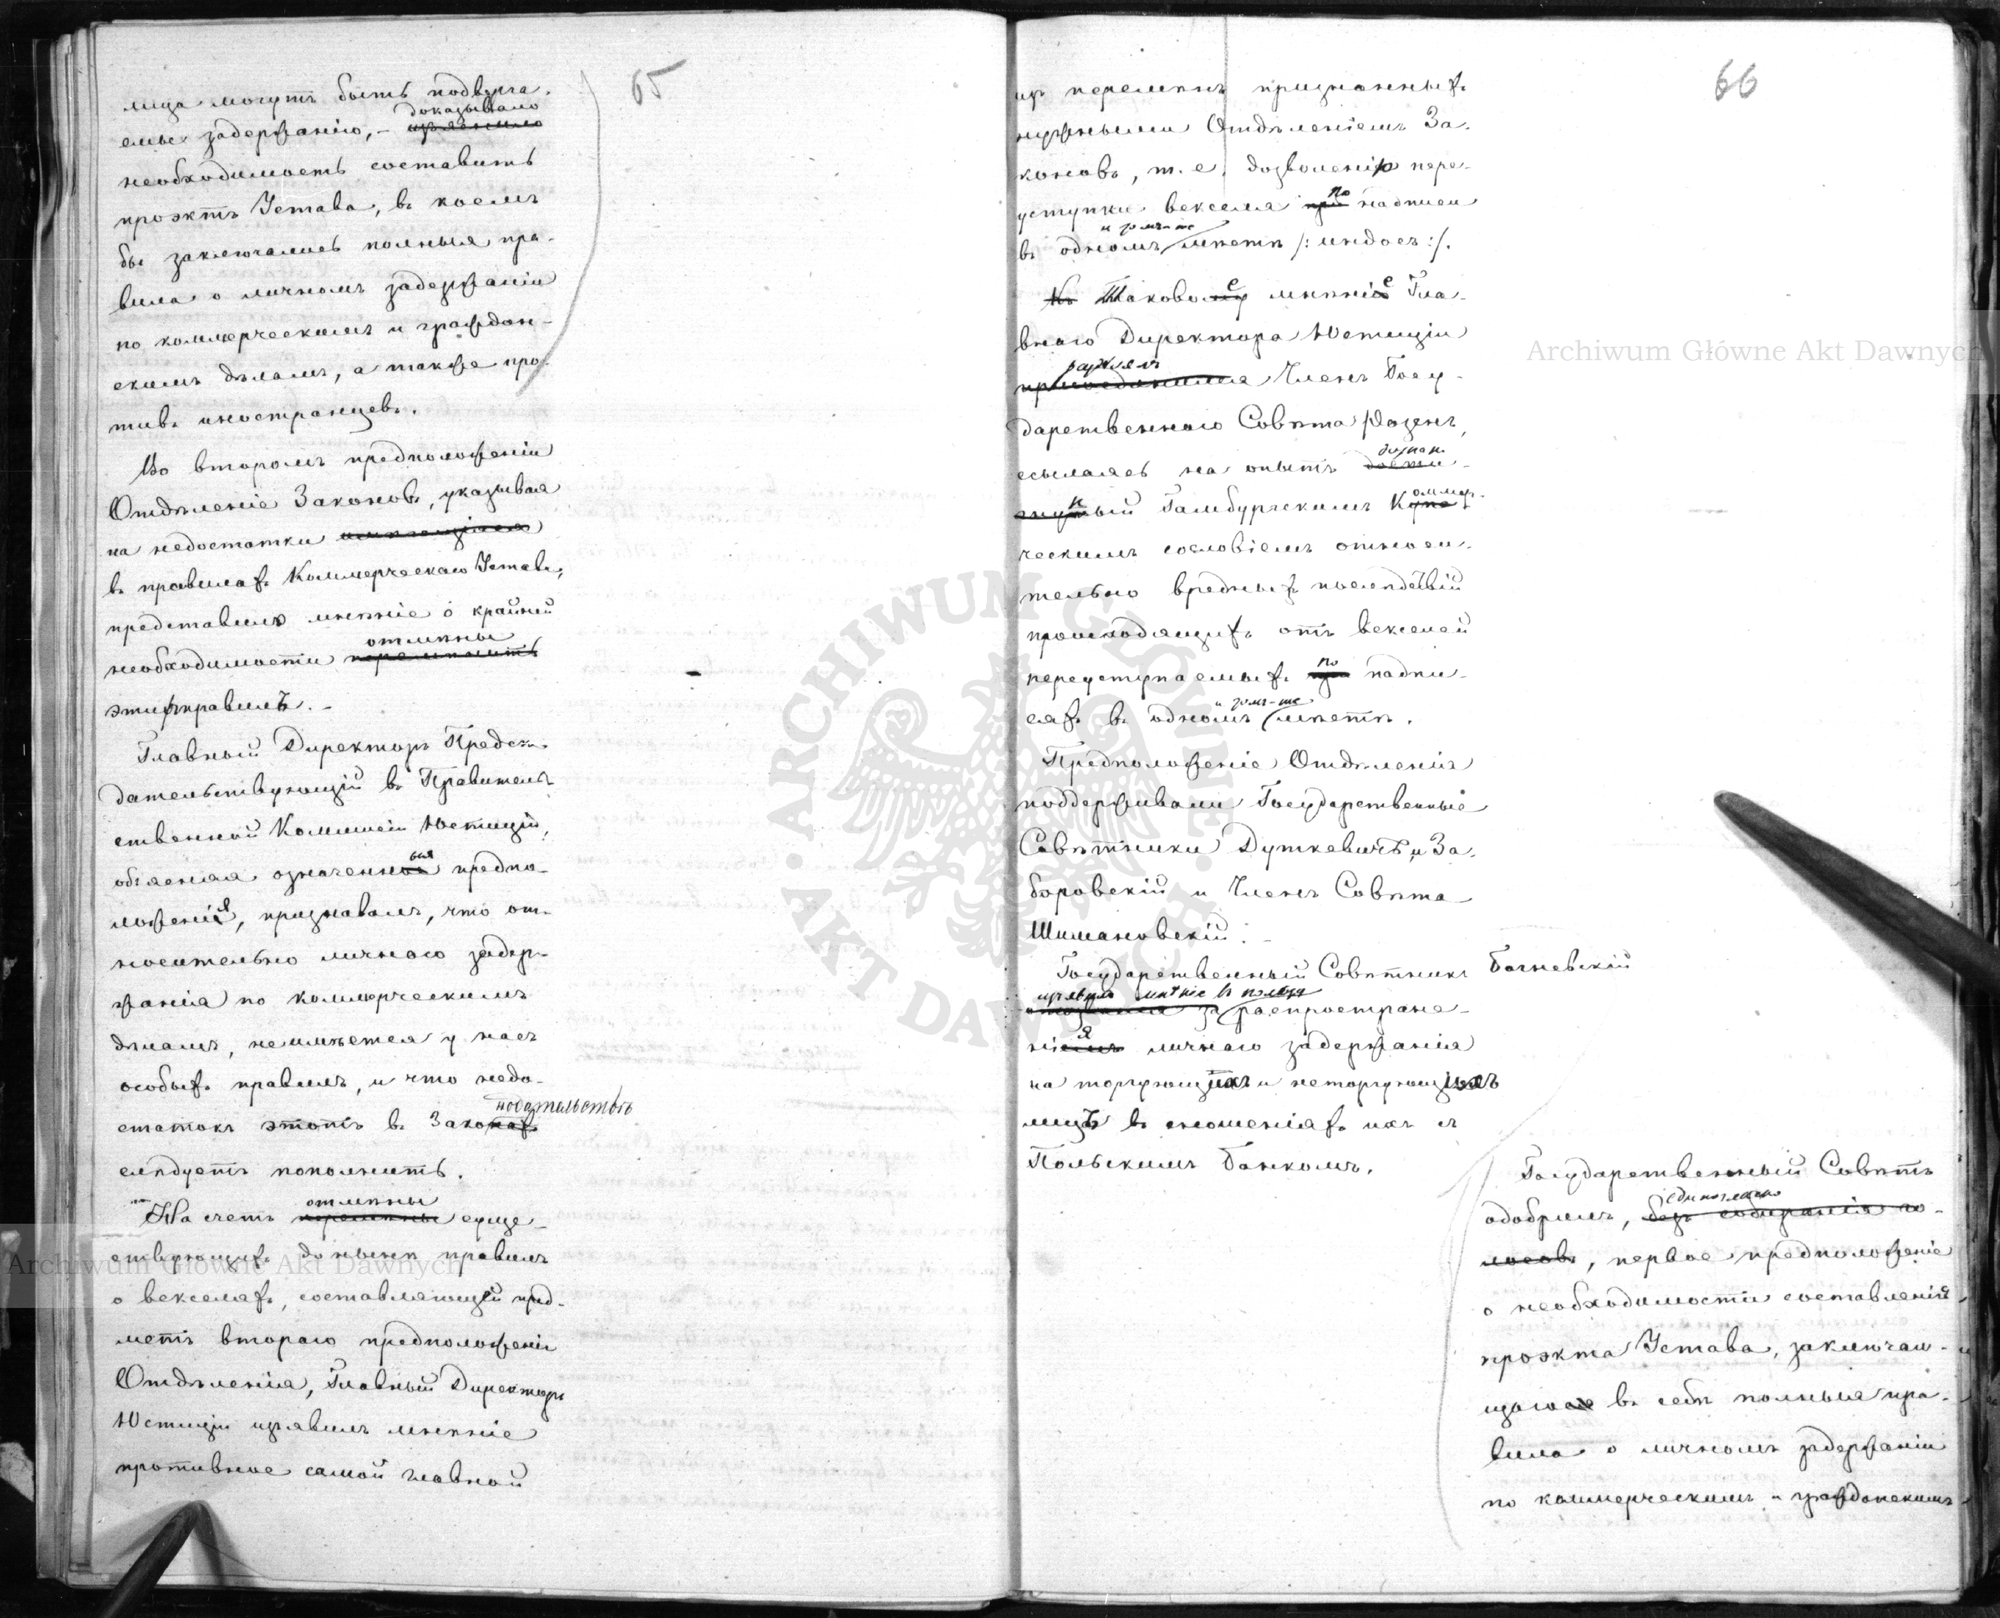 65
лица могутъ быть подверга-
емы задержанію, — доказывало
необходимость составить
проэктъ Устава, въ коемъ
бы заключались полныя пра-
вила о личномъ задержаніи
по коммерческимъ и граждан-
скимъ дѣламъ, а также про-
тивъ иностранцевъ.
Во второмъ предположеніи
Отдѣленіе Законовъ, указывая
на недостатки
въ правилахъ Коммерческаго Устава,
представило мнѣніе о крайней
отмѣны
необходимости перемѣнить
этихъ правилъ. —
Главный Директоръ Предсѣ-
дательствующій въ Правитель-
ственной Коммисіи Юстиціи,
объясняя означенныя предпо-
ложенія, признавалъ, что от-
носительно личнаго задер-
жанія по коммерческимъ
дѣламъ, неимѣется у насъ
особыхъ правилъ, и что недо-
нодательствѣ
статокъ этотъ въ Законахъ
слѣдуетъ пополнить.
отмѣны
На счетъ перемѣны суще-
ствующихъ донынѣ правилъ
о векселяхъ, составляющей пред-
метъ втораго предположенія
Отдѣленія, Главный Директоръ
Юстиціи изъявилъ мнѣніе
противное самой главной
66
изъ перемѣнъ признанныхъ
нужными Отдѣленіемъ За-
коновъ, т. е. дозволенію пере-
по
уступки векселя при надписи
и томъ-же
въ одномъ мѣстѣ /: индос :/.
Къ Таковое мнѣніе Гла-
внаго Директора Юстиціи
раздѣлялъ
присоединился Членъ Госу-
дарственнаго Совѣта Розенъ,
ссылаясь на опытъ дознан-
ный Гамбургскимъ Коммер-
ческимъ сословіемъ относи-
тельно вредныхъ послѣдствій
происходящихъ отъ векселей
по
переуступаемыхъ надпи-
и томъ-же
сяхъ въ одномъ мѣстѣ.
Предположеніе Отдѣленія
поддерживали Государственные
Совѣтники Дуткевичъ и За-
боровскій и Членъ Совѣта
Шимановскій. —
Государственный Совѣтникъ Богневскій
изъявилъ мнѣніе въ пользу
отозвался за распростране-
нія личнаго задержанія
на торгующихъ и неторгующихъ
лицъ въ сношеніяхъ ихъ съ
Польскимъ Банкомъ.
Государственный Совѣтъ
единогласно
одобрилъ, безъ собиранія го-
лосовъ, первое предположеніе
о необходимости составленія
проэкта Устава, заключаю-
щаго въ себѣ полныя пра-
вила о личномъ задержаніи
по коммерческимъ и гражданскимъ
Archiwum Główne Akt Dawnych
Archiwum Główne Akt Dawnych
ARCHIWUM GŁÓWNE AKT DAWNYCH